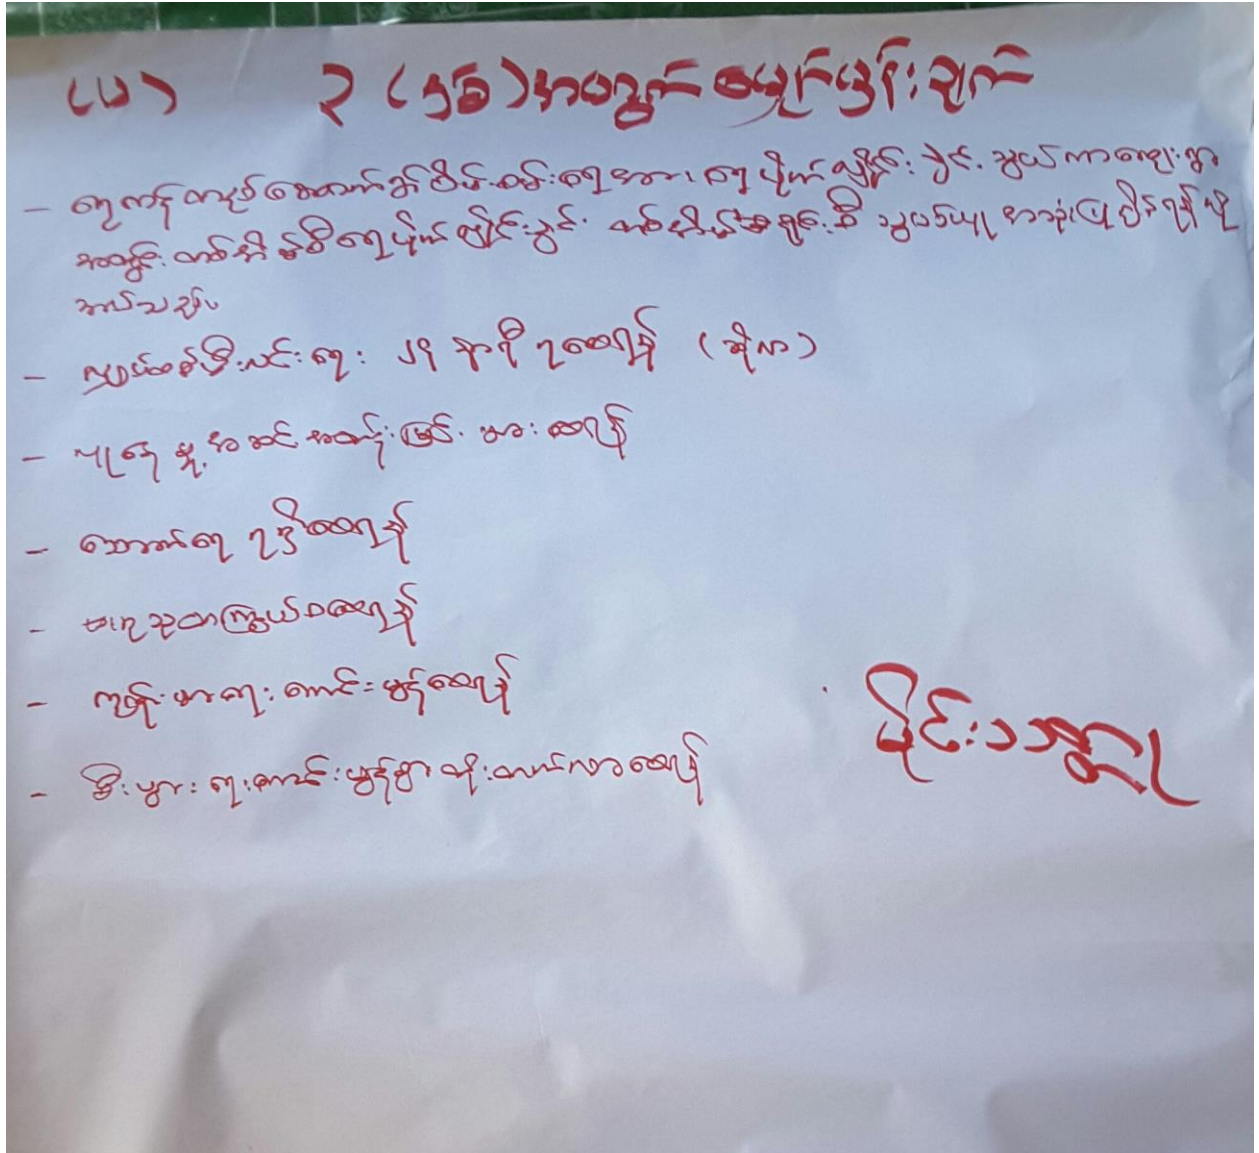 (ပ) ၃ (နှစ်) အတွက် မျှော်မှန်းချက်
- ရေကန် တည်ဆောက် စိမ့်စမ်းရေအား ရေပိုက်လှိုင်းဖြင့် သွယ်ကာ ကျေးရွာ
အတွင်း တစ်အိမ်စီ ရေပိုက်လှိုင်းဖြင့် တစ်အိမ်ချင်းစီ သွယ်ယူ အသုံးပြုနိုင်ရန်
- လျှပ်စစ်မီးလင်းရေး ၂၄ နာရီ ရစေရန် (ဆိုလာ)
- ပညာရေး အဆင့်အတန်းမြင့်မားစေရန်
- သောက်ရေ ရရှိစေရန်
- ဗဟုသုတကြွယ်ဝစေရန်
- ကျန်းမာရေးကောင်းမွန်စေရန်
- စီးပွားရေးကောင်းမွန်စွာ တိုးတက်လာစေရန်